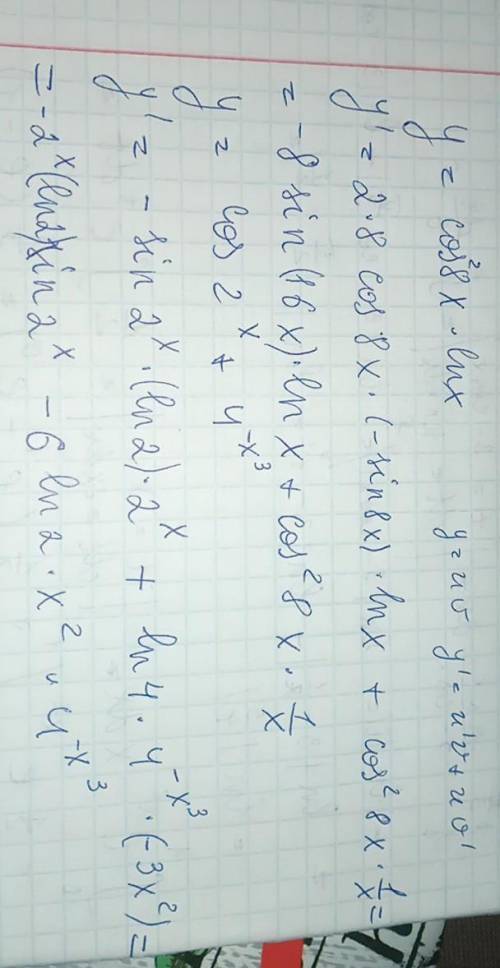 y = cos²8x · lnx   y = uv   y' = u'v + uv'
y' = 2·8 cos 8x · (-sin 8x) · ln x + cos² 8x · 1/x =
= -8 sin (16x) · ln x + cos² 8x · 1/x
y = cos 2^x + 4^(-x³)
y' = - sin 2^x · (ln 2) · 2^x + ln 4 · 4^(-x³) · (-3x²) =
= -2^x (ln 2) sin 2^x - 6 ln 2 · x² · 4^(-x³)